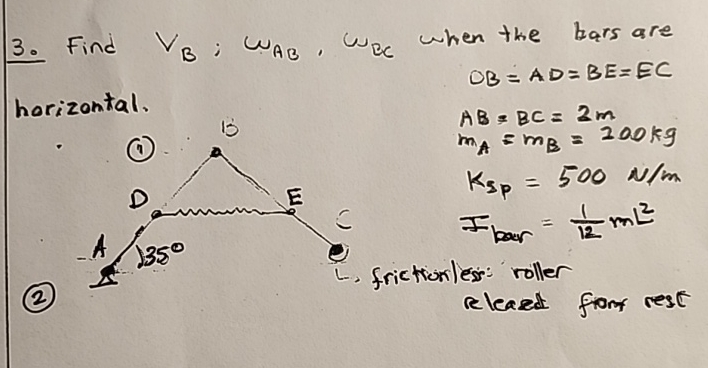 3. Find V_B ; ω_AB , ω_BC when the bars are
horizontal.
DB = AD = BE = EC
AB = BC = 2m
m_A = m_B = 200kg
K_sp = 500 N/m
I_bar = 1/12 mL²
B
①
D
E
C
A
35°
②
frictionless roller
released from rest